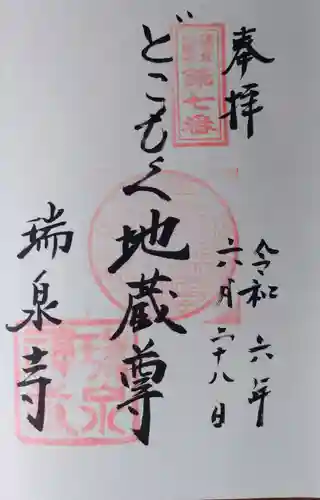 奉拝
令和六年
六月二十八日
第七番
どこもく地蔵尊
瑞泉寺